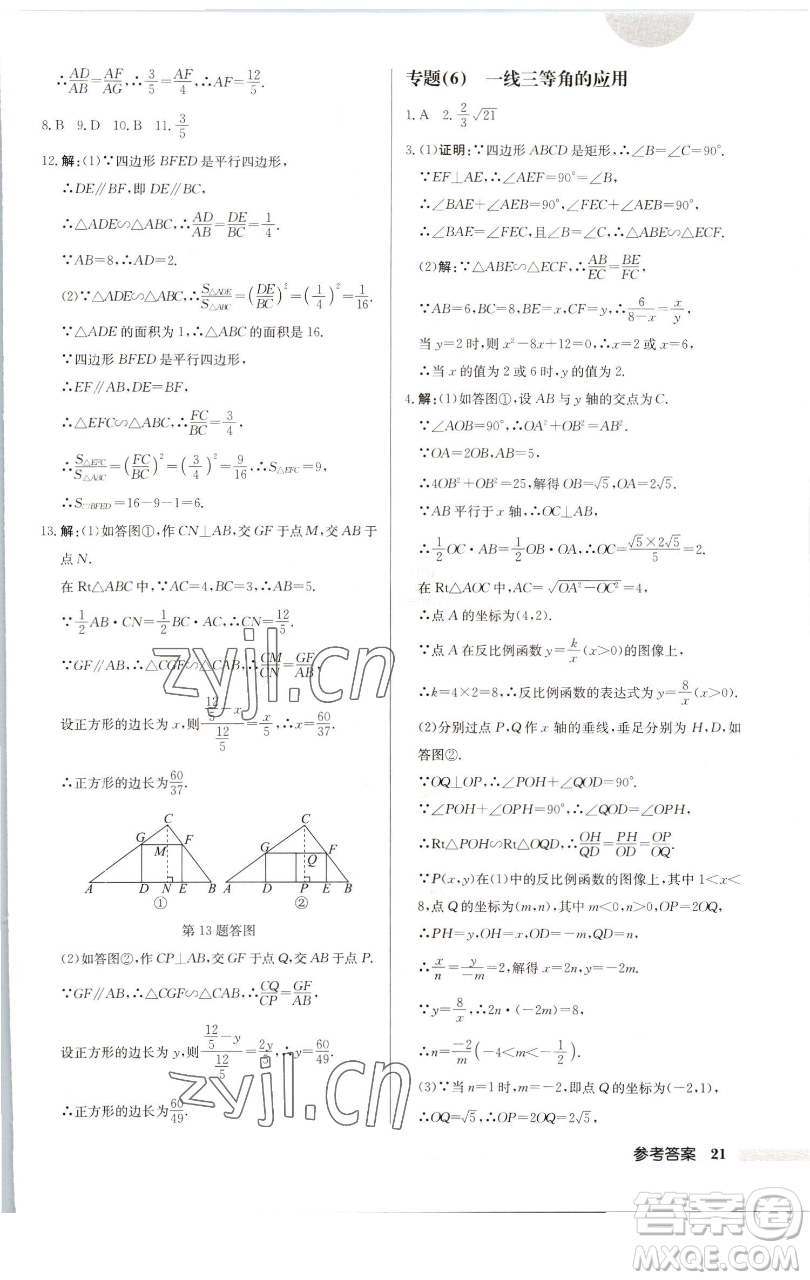 ∴AD/AB=AF/AG,∴3/5=AF/4,∴AF=12/5.
8.B 9.D 10.B 11.3/5
12.解:(1)∵四边形 BFED 是平行四边形,
∴DE∥BF,即 DE∥BC,
∴△ADE∽△ABC,∴AD/AB=DE/BC=1/4.
∵AB=8,∴AD=2.
(2)∵△ADE∽△ABC,∴S△ADE/S△ABC=(DE/BC)²=(1/4)²=1/16.
∵△ADE 的面积为 1,∴△ABC 的面积是 16.
∵四边形 BFED 是平行四边形,
∴EF∥AB,
∴△EFC∽△ABC,∴FC/BC=3/4,
∴S△EFC/S△ABC=(FC/BC)²=(3/4)²=9/16,∴S△EFC=9,
∴S□BFED=16-9-1=6.
13.解:(1)如答图①,作 CN⊥AB,交 GF 于点 M,交 AB 于
点 N.
在 Rt△ABC 中,∵AC=4,BC=3,∴AB=5.
∵1/2AB·CN=1/2BC·AC,∴CN=12/5.
∵GF∥AB,∴△CGF∽△CAB,∴CM/CN=GF/AB.
设正方形的边长为 x,则(12/5-x)/(12/5)=x/5,∴x=60/37.
∴正方形的边长为60/37.
C
G F
M
A D N E B
①
C
G Q F
A D P E B
②
第 13 题答图
(2)如答图②,作 CP⊥AB,交 GF 于点 Q,交 AB 于点 P.
∵GF∥AB,∴△CGF∽△CAB,∴CQ/CP=GF/AB,
设正方形的边长为 y,则(12/5-y)/(12/5)=2y/5,∴y=60/49.
∴正方形的边长为60/49.
专题(6) 一线三等角的应用
1.A 2.2/3√21
3.(1)证明:∵四边形 ABCD 是矩形,∴∠B=∠C=90°.
∵EF⊥AE,∴∠AEF=90°=∠B,
∴∠BAE+∠AEB=90°,∠FEC+∠AEB=90°,
∴∠BAE=∠FEC,且∠B=∠C,∴△ABE∽△ECF.
(2)解:∵△ABE∽△ECF,∴AB/EC=BE/FC,
∵AB=6,BC=8,BE=x,CF=y,∴6/(8-x)=x/y,
当 y=2 时,则 x²-8x+12=0,∴x=2 或 x=6,
∴当 x 的值为 2 或 6 时,y 的值为 2.
4.解:(1)如答图①,设 AB 与 y 轴的交点为 C.
∵∠AOB=90°,∴OA²+OB²=AB².
∵OA=2OB,AB=5,
∴4OB²+OB²=25,解得 OB=√5,OA=2√5.
∵AB 平行于 x 轴,∴OC⊥AB,
∴1/2OC·AB=1/2OB·OA,∴OC=(√5×2√5)/5=2.
在 Rt△AOC 中,AC=√(OA²-OC²)=4,
∴点 A 的坐标为(4,2).
∵点 A 在反比例函数 y=k/x(x>0)的图像上,
∴k=4×2=8,∴反比例函数的表达式为 y=8/x(x>0).
(2)分别过点 P,Q 作 x 轴的垂线,垂足分别为 H,D,如
答图②.
∵OQ⊥OP,∴∠POH+∠QOD=90°.
∵∠POH+∠OPH=90°,∴∠QOD=∠OPH,
∴Rt△POH∽Rt△OQD,∴OH/QD=PH/OD=OP/OQ.
∵P(x,y)在(1)中的反比例函数的图像上,其中 1<x<
8,点 Q 的坐标为(m,n),其中 m<0,n>0,OP=2OQ,
∴PH=y,OH=x,OD=-m,QD=n,
∴x/n=y/-m=2,解得 x=2n,y=-2m.
∵y=8/x,∴2n·(-2m)=8,
∴n=-2/m(-4<m<-1/2).
(3)∵当 n=1 时,m=-2,即点 Q 的坐标为(-2,1),
∴OQ=√5,∴OP=2OQ=2√5,
参考答案 21
zyjl.cn
zyjl.cn
答案圈
MXQE.COM